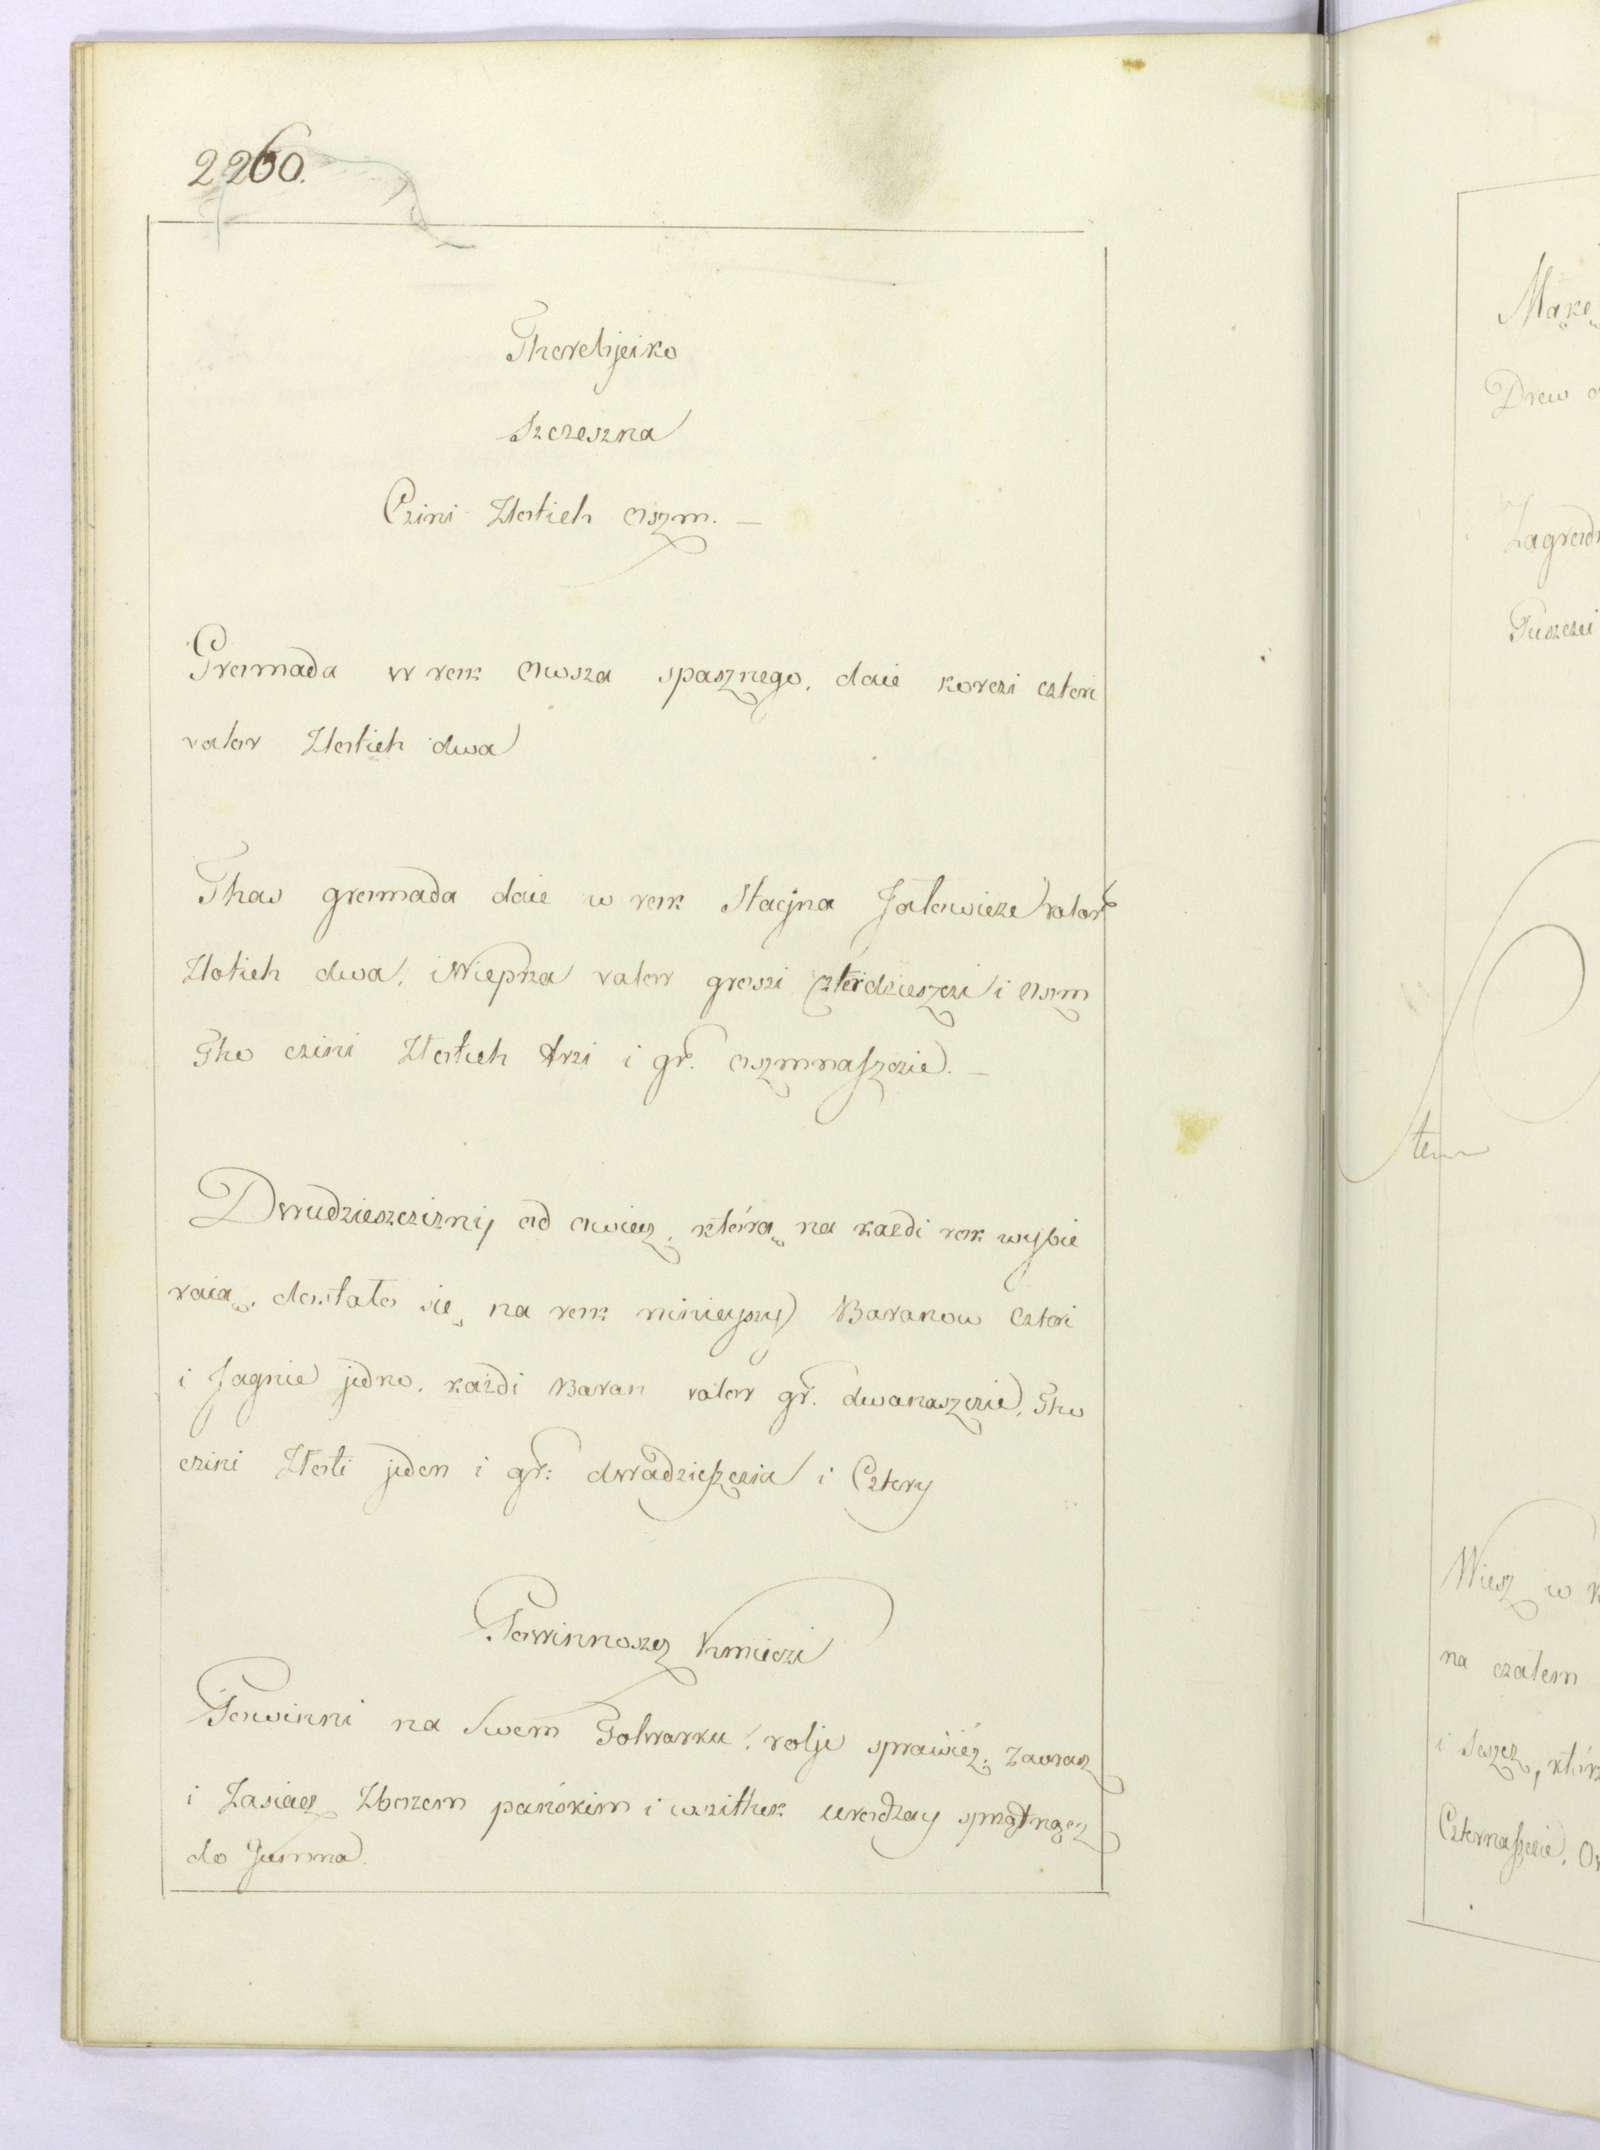 2260.
Thorebjeiko
Szczeszna
Czini Zlotich oszm. —
Gromada w rok Owsza spasznego, daie korczi cztori
valor Zlotich dwa
Thas gromada daie w rok Stacjna Jałowicze valor
Zlotich dwa, i Wieprza valor groszi czterdzieszczi i osm
Tho czini Złotich trzi i gr. oszmnaszczie. —
Dwudzieszcizni od owiecz, którą na każdi rok wybie
raią, dostało się na rok ninieyszy Baranow cztori
i Jagnie jedno, każdi Baran valor gr. dwanaszczie, Tho
czini Złoti jeden i gr: dwadzieszczia i Cztery
Powinnoszcz Kmieczi
Powinni na Swem Folwarku, rolje sprawićz, zaoracz
i Zasiacz Zbozem pańskim i wszitkek urodzay sprzątnącz
do Gumna.
Mąkę
Drew
Puszczi
Wiesz w
na czałem
i Seszcz, któr
Czternaszcie. Ow